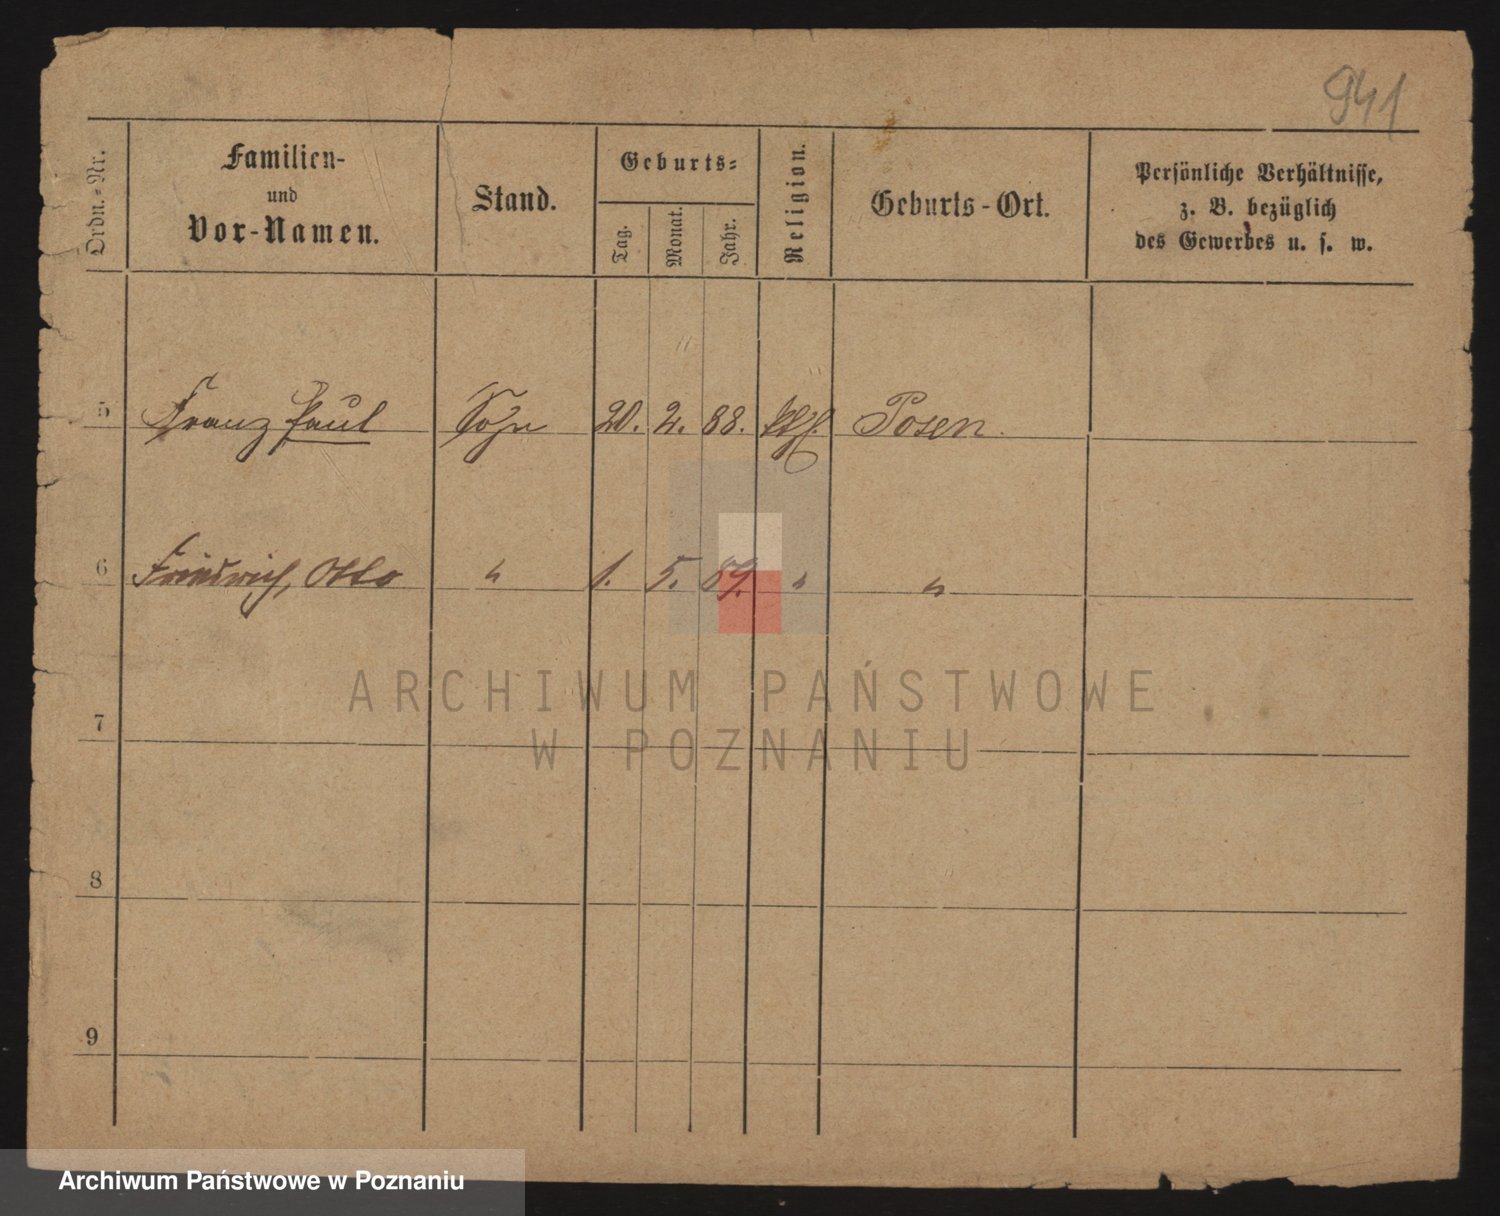 941
Ordn.-Nr. Familien- und Vor-Namen. Stand. Geburts- Tag. Monat. Jahr. Religion. Geburts-Ort. Persönliche Verhältnisse, z. B. bezüglich des Gewerbes u. s. w.
5 Franz Paul Sohn 20. 2. 88. kth. Posen
6 Friedrich, Otto " 1. 5. 89. " "
7
8
9
ARCHIWUM PAŃSTWOWE
W POZNANIU
Archiwum Państwowe w Poznaniu